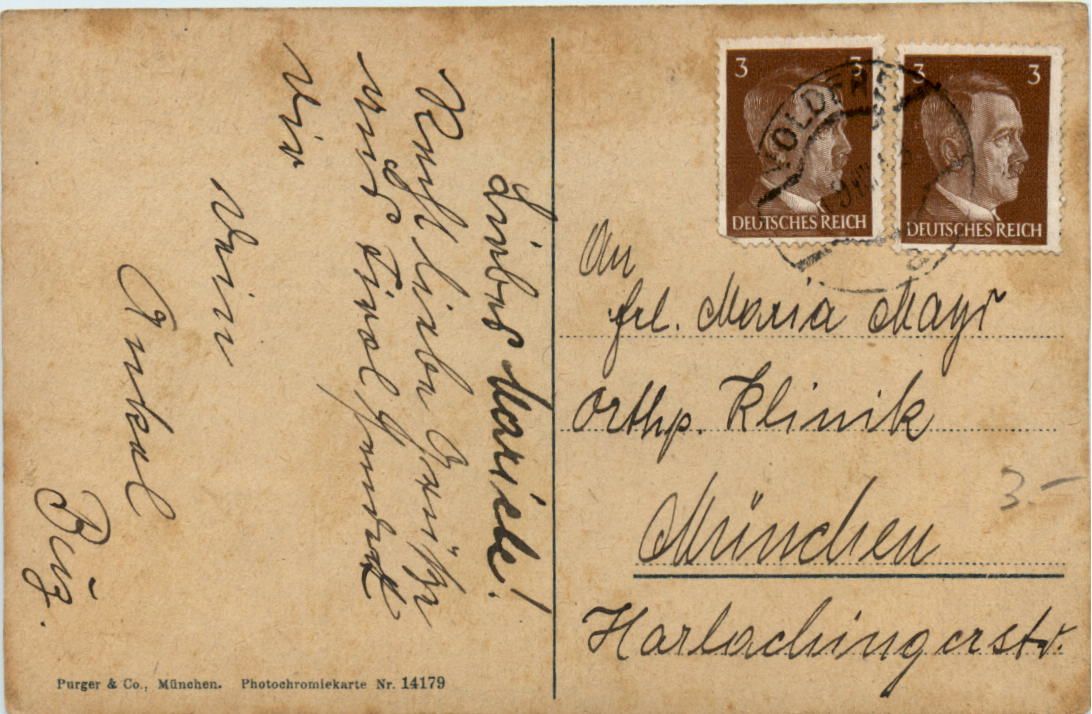 Liebes Mariele!
Recht liebe Grüße
aus Tirol sendet
Dir
Dein
Onkel
3 3
DEUTSCHES REICH
3 3
DEUTSCHES REICH
An
Frl. Maria Mayr
Orthp. Klinik
München
Harlachingerstr.
3.-
Purger & Co., München. Photochromiekarte Nr. 14179